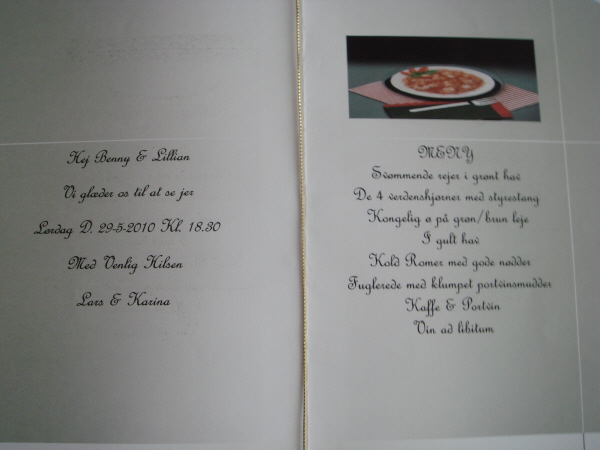 Hej Benny & Lillian
Vi glæder os til at se jer
Lørdag D. 29-5-2010 Kl. 18.30
Med Venlig Hilsen
Lars & Karina
MENY
Svømmende rejer i grønt hav
De 4 verdenshjørner med styrestang
Kongelig ø på grøn/brun leje
I gult hav
Kold Romer med gode nødder
Fuglerede med klumpet portvinsmudder
Kaffe & Portvin
Vin ad libitum